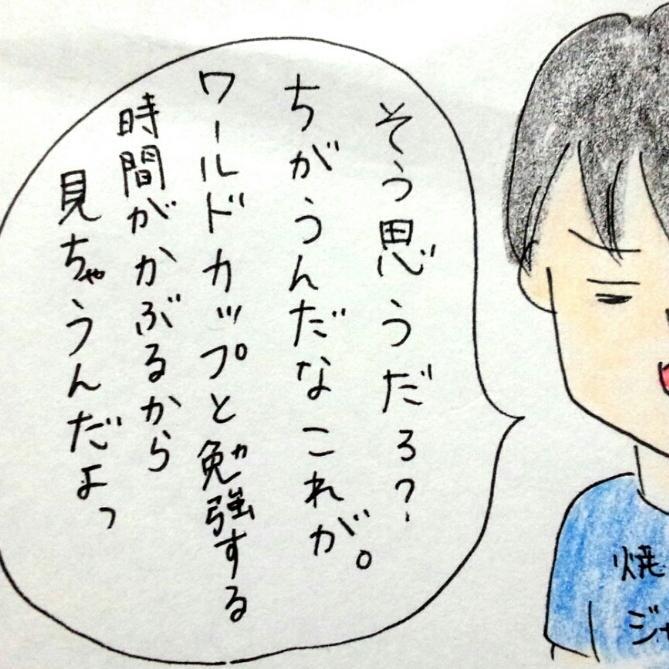 そう思うだろ?
ちがうんだなこれが。
ワールドカップと勉強する
時間がかぶるから
見ちゃうんだよっ
焼
ジャ